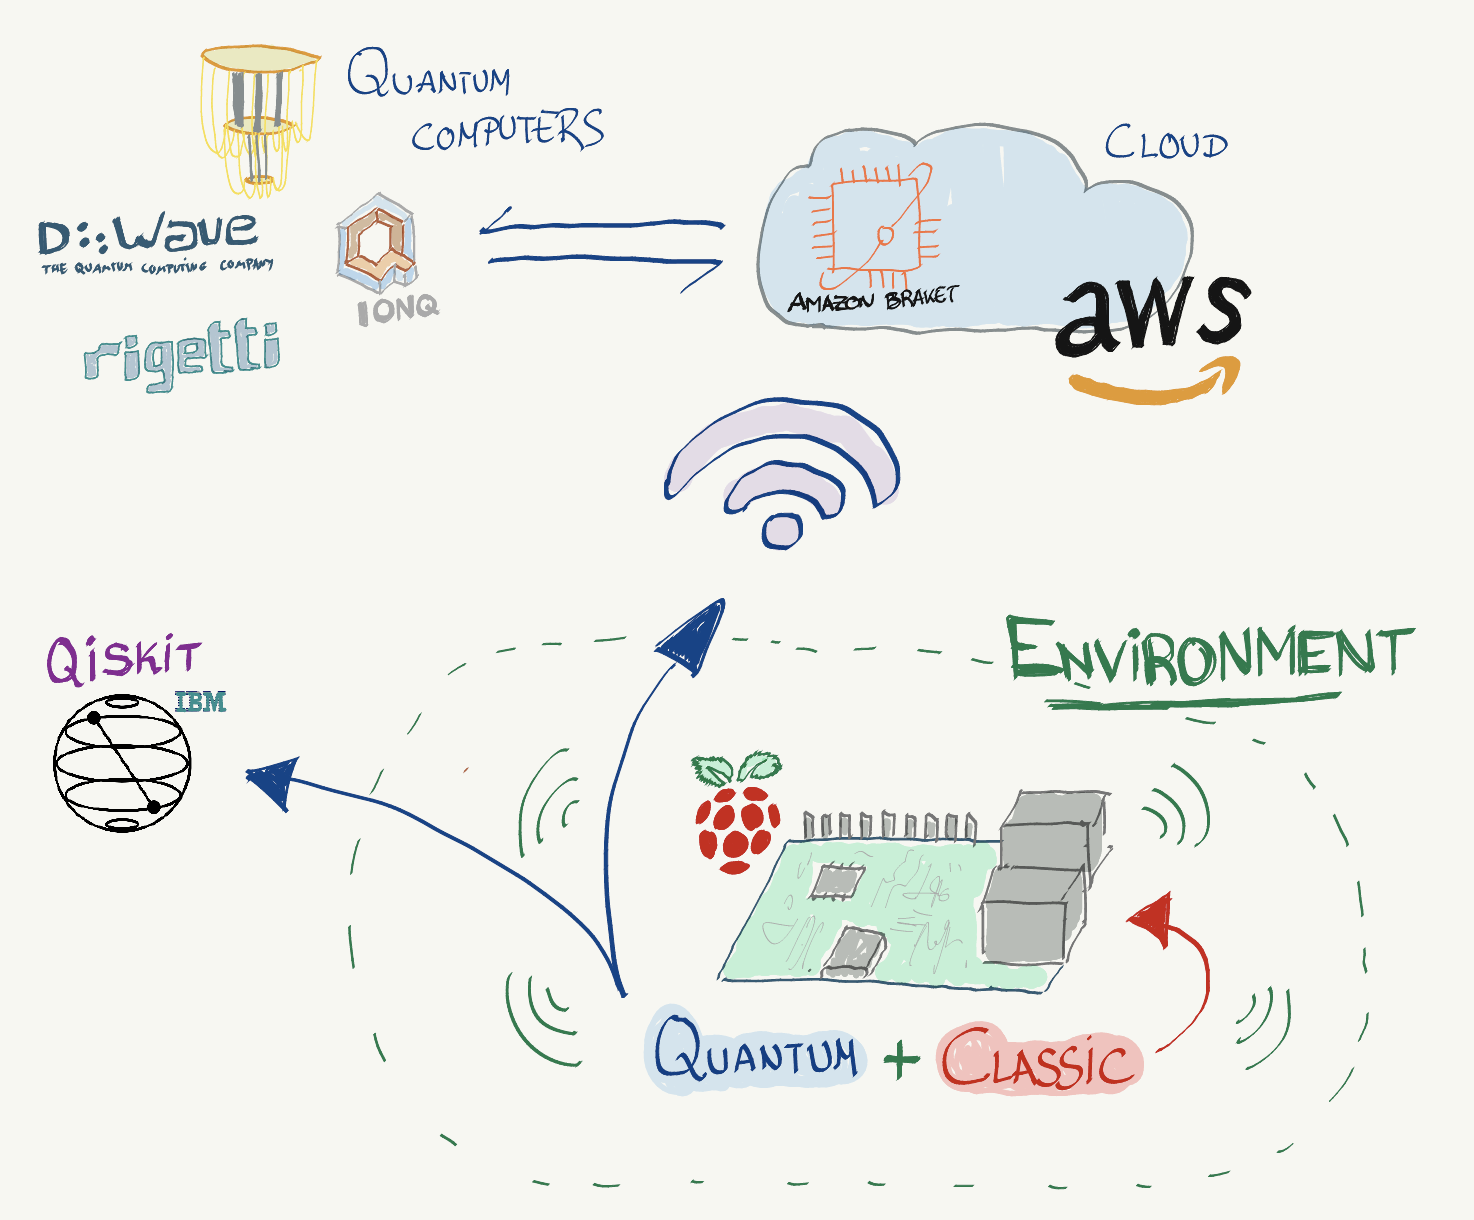 QUANTUM
COMPUTERS
CLOUD
D::Wave
THE QUANTUM COMPUTING COMPANY
IONQ
AMAZON BRAKET
aws
rigetti
ENVIRONMENT
QISKIT
IBM
QUANTUM + CLASSIC